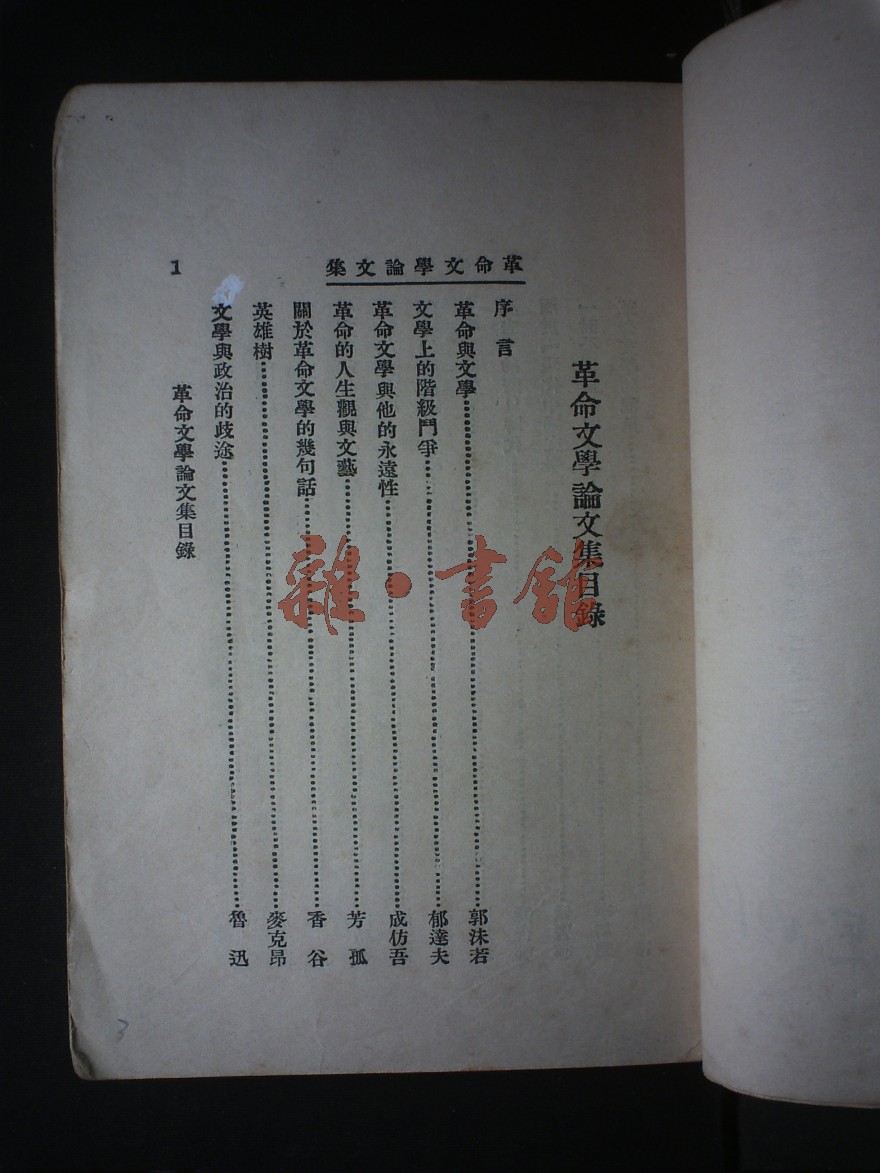 革命文學論文集目錄
革命文學論文集
序言
革命與文學……郭沫若
文學上的階級鬥爭……郁達夫
革命文學與他的永遠性……成仿吾
革命的人生觀與文藝……芳孤
關於革命文學的幾句話……香谷
英雄樹……麥克昂
文學與政治的歧途……魯迅
革命文學論文集目錄
1
雜·書館
3